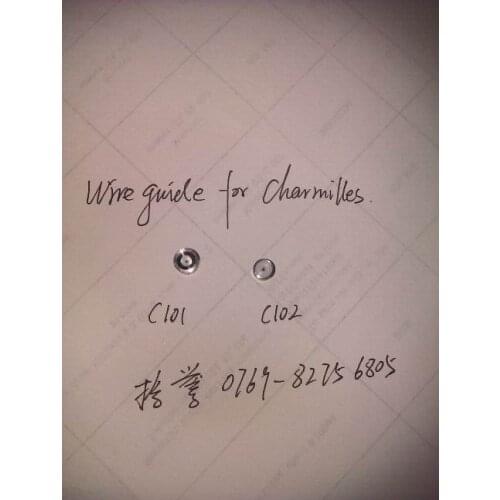 Wire guide for Charmilles.
C101 C102
誉 0769-82756805